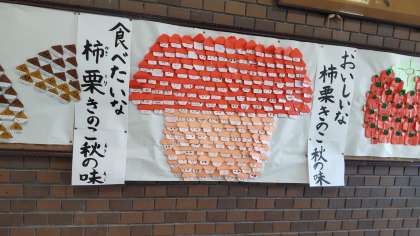 食べたいな
柿栗きのこ秋の味
おいしいな
柿栗きのこ秋の味